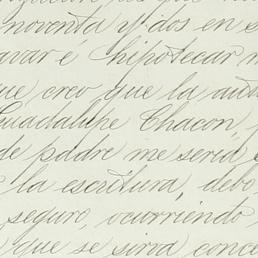 que
noventa y dos en
avar é hipotecar
ue creo que la aut
Guadalupe Chacon,
de padre me seria
la escritura, debo
seguro, ocurriendo
que se sirva conce